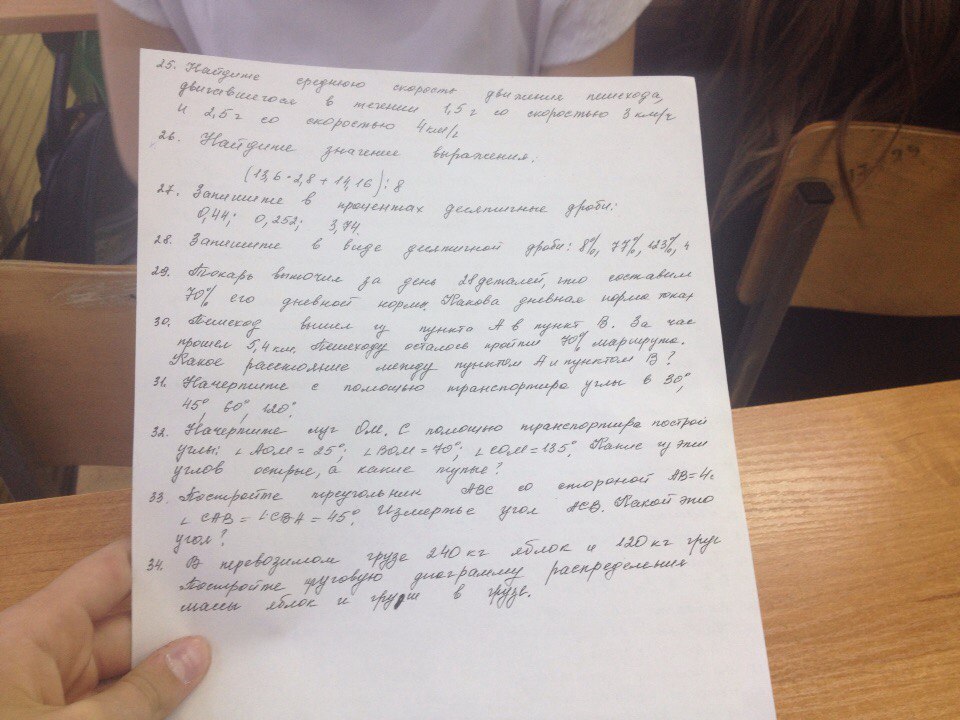 25. Найдите среднюю скорость движения пешехода,
двигавшегося в течении 1,5 г со скоростью 3 км/ч
и 2,5 г со скоростью 4 км/г
26. Найдите значение выражения.
(13,6 · 2,8 + 14,16) : 8
27. Запишите в процентах десятичные дроби:
0,44; 0,252; 3,74.
28. Запишите в виде десятичной дроби: 8%, 77%, 123%, 4
29. Токарь выточил за день 28 деталей, что составим
70% его дневной нормы. Какова дневная норма тока
30. Пешеход вышел из пункта А в пункт В. За час
прошел 5,4 км. Пешеходу осталось пройти 70% маршрута.
Какое расстояние между пунктом А и пунктом В?
31. Начертите с помощью транспортира углы в 30°,
45°, 60°, 120°.
32. Начертите луч ОМ. С помощью транспортира построй
углы: ∠ АОМ = 25°; ∠ ВОМ = 70°; ∠ СОМ = 135°. Какие из эти
углов острые, а какие тупые?
33. Постройте треугольник АВС со стороной АВ = 4
∠ САВ = ∠ СВА = 45°. Измерьте угол АСВ. Какой это
угол?
34. В перевозимом грузе 240 кг яблок и 120 кг груш
Постройте круговую диаграмму распределения
массы яблок и груш в грузе.